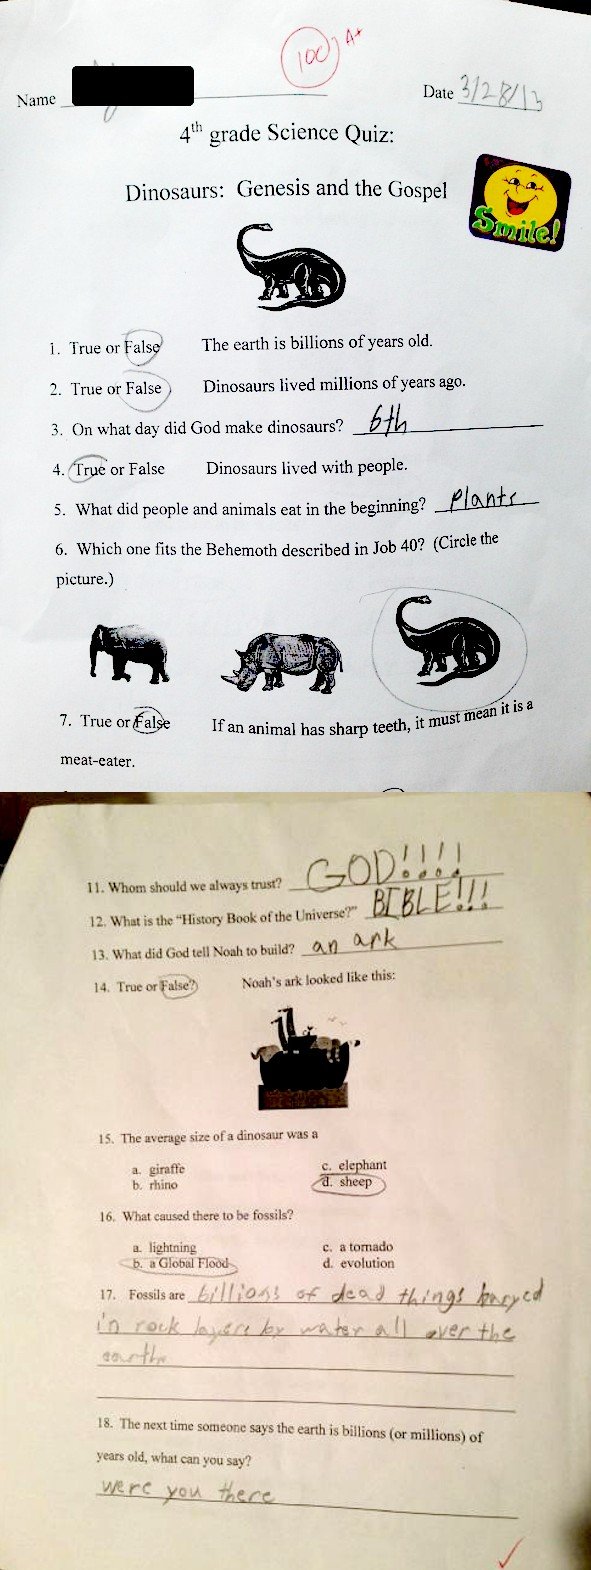 100 A+
Name Date 3/28/13
4th grade Science Quiz:
Dinosaurs: Genesis and the Gospel
Smile!
1. True or False The earth is billions of years old.
2. True or False Dinosaurs lived millions of years ago.
3. On what day did God make dinosaurs? 6th
4. True or False Dinosaurs lived with people.
5. What did people and animals eat in the beginning? Plants
6. Which one fits the Behemoth described in Job 40? (Circle the
picture.)
7. True or False If an animal has sharp teeth, it must mean it is a
meat-eater.
11. Whom should we always trust? GOD!!!!
12. What is the "History Book of the Universe?" BIBLE!!!
13. What did God tell Noah to build? an ark
14. True or False? Noah's ark looked like this:
15. The average size of a dinosaur was a
a. giraffe c. elephant
b. rhino d. sheep
16. What caused there to be fossils?
a. lightning c. a tornado
b. a Global Flood d. evolution
17. Fossils are billions of dead things buryed
in rock layers by water all over the
earth
18. The next time someone says the earth is billions (or millions) of
years old, what can you say?
were you there